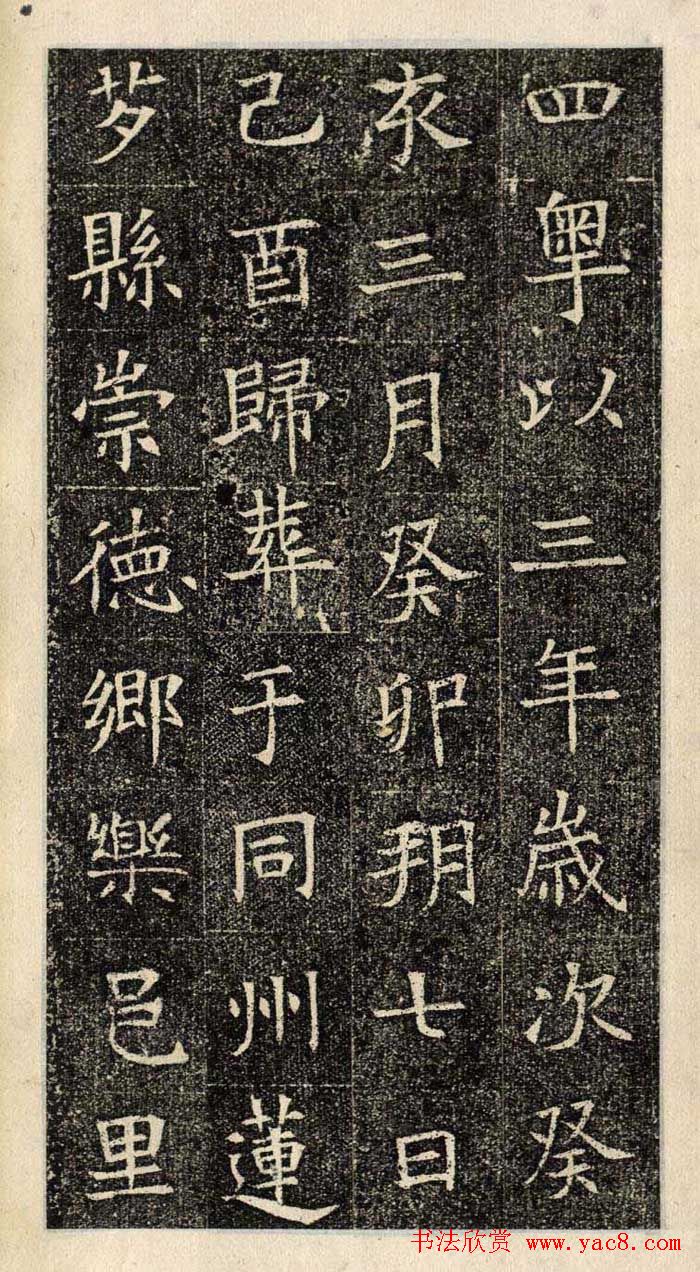 四粵以三年歲次癸
亥三月癸卯朔七日
己酉歸葬于同州蓮
芍縣崇徳鄉樂邑里
书法欣赏 www.yac8.com